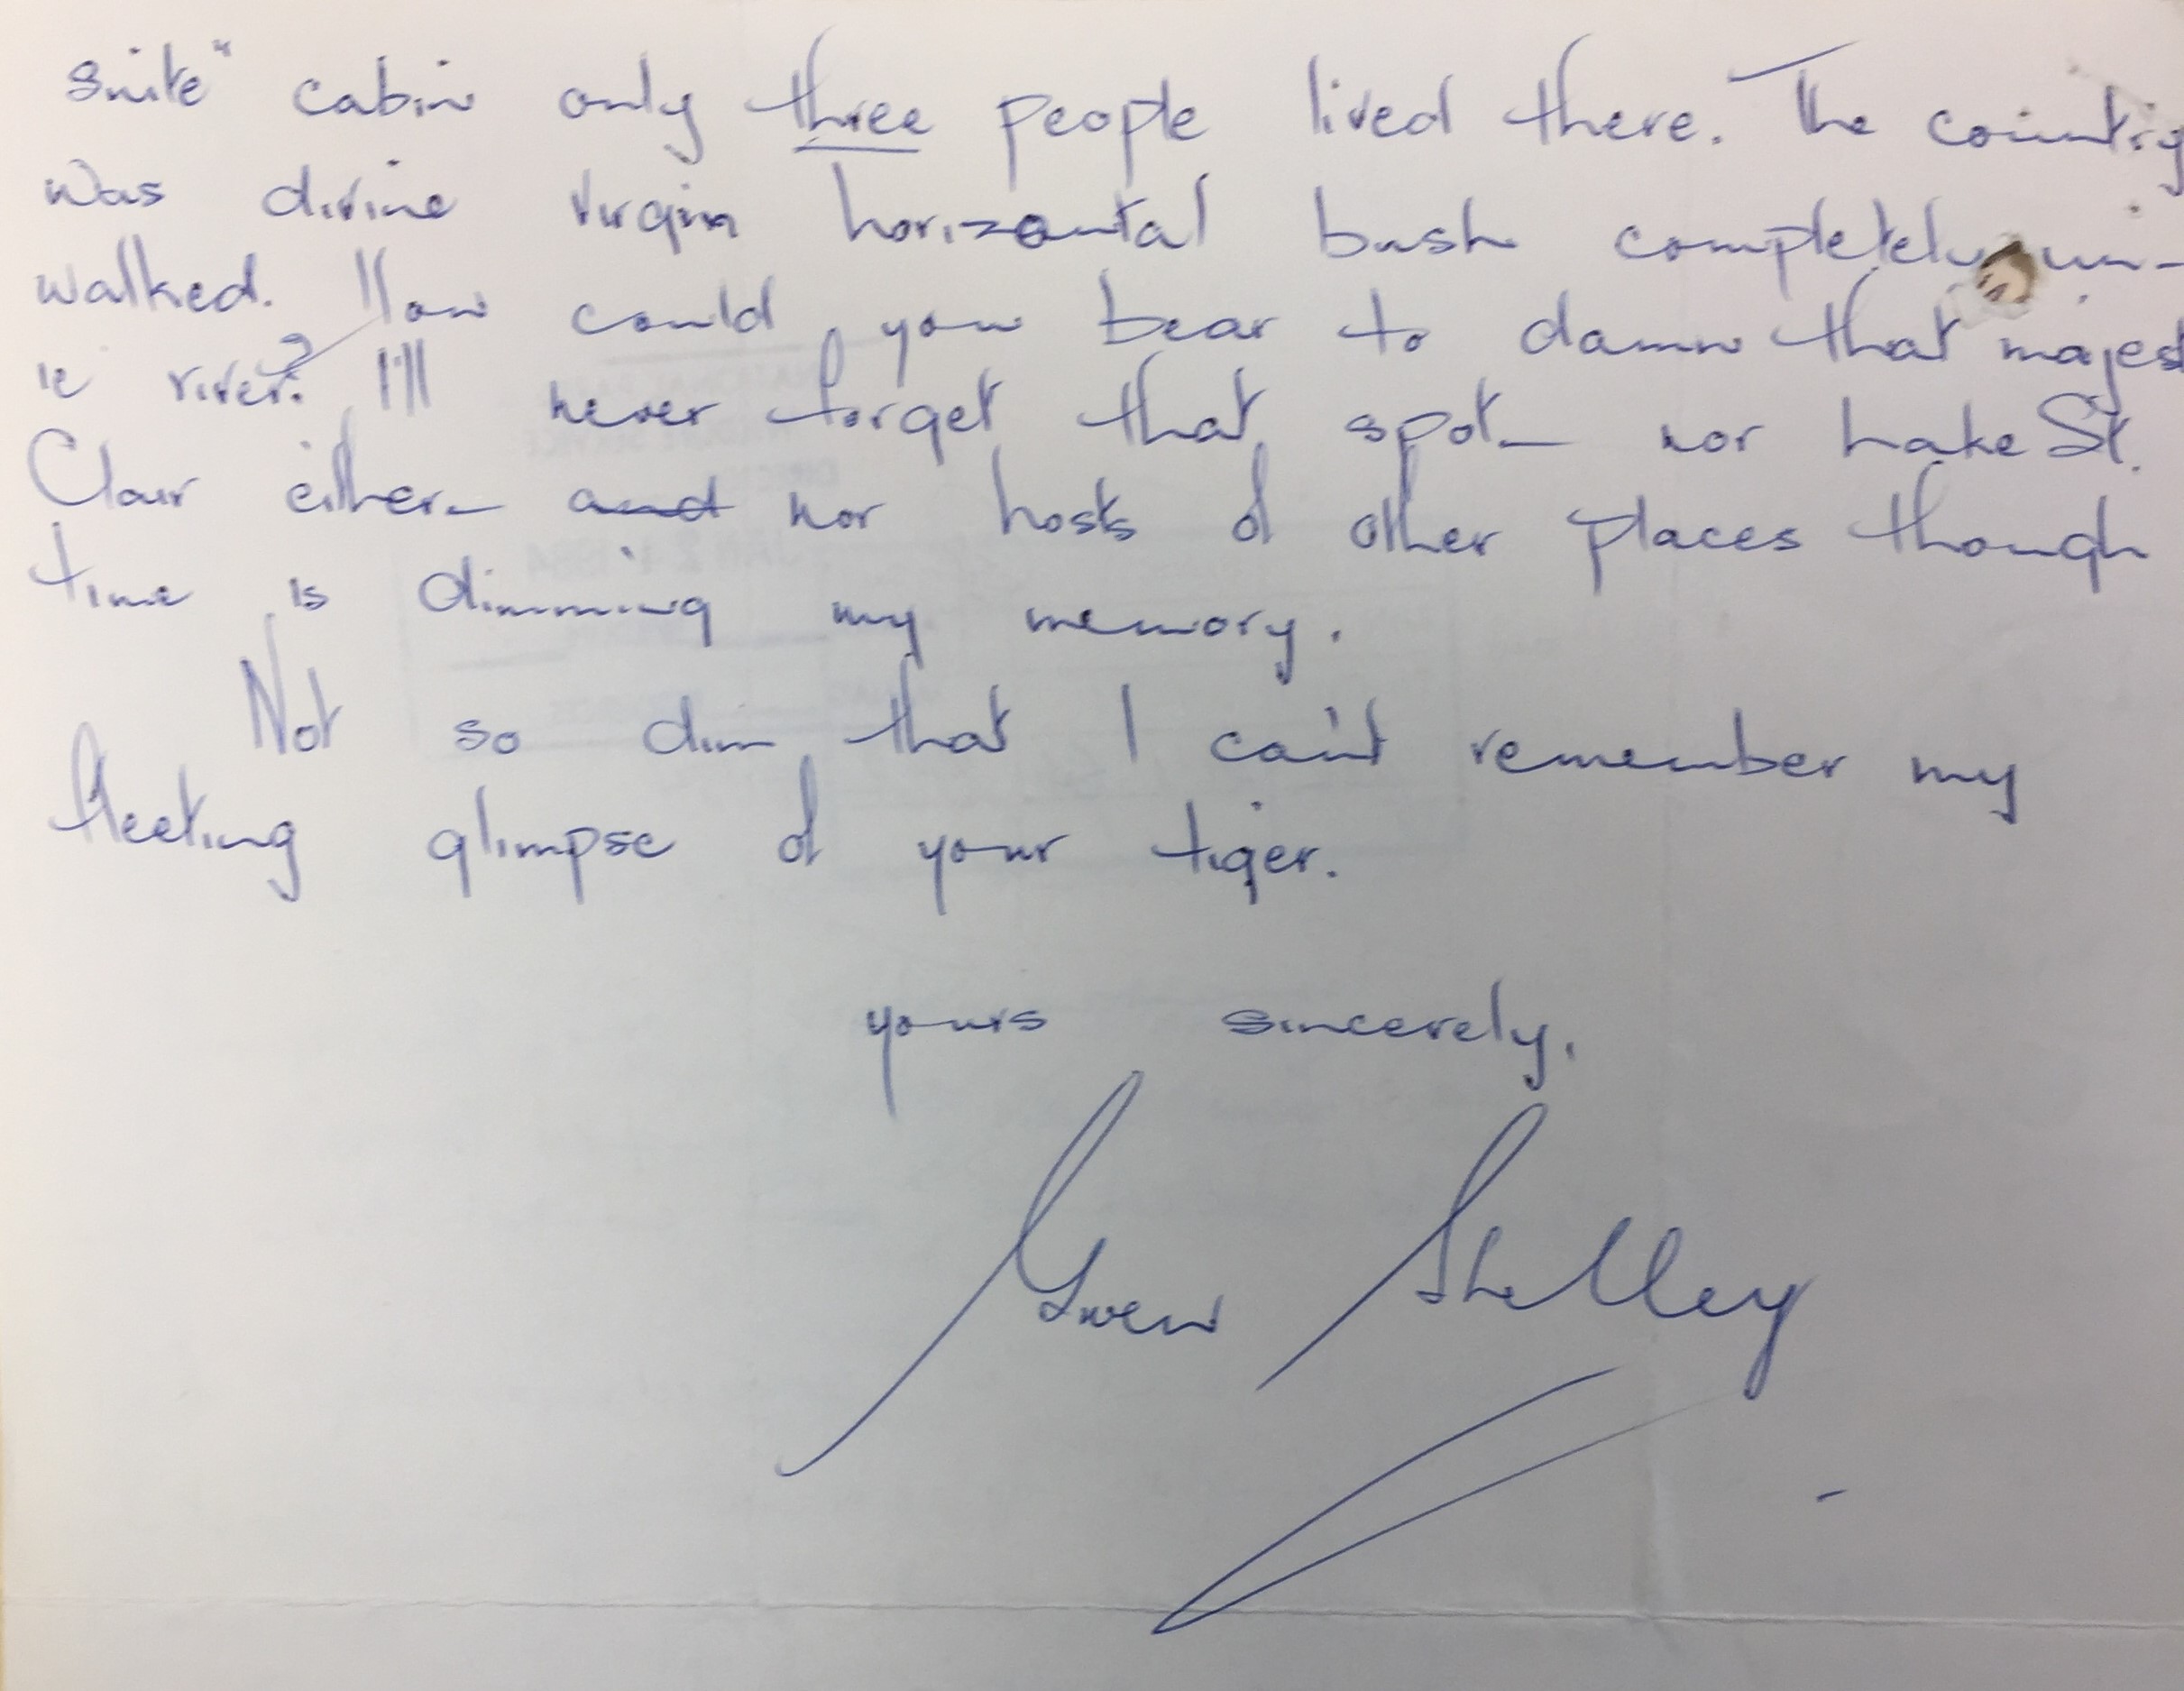 suite" cabin only three people lived there. The country
was divine virgin horizontal bush completely un-
walked. How could you bear to damn that majest
ic river? I'll never forget that spot – nor Lake St.
Clair either – and nor hosts of other places though
time is dimming my memory.
Not so dim that I can't remember my
fleeting glimpse of your tiger.
yours sincerely,
Gwen Shelley